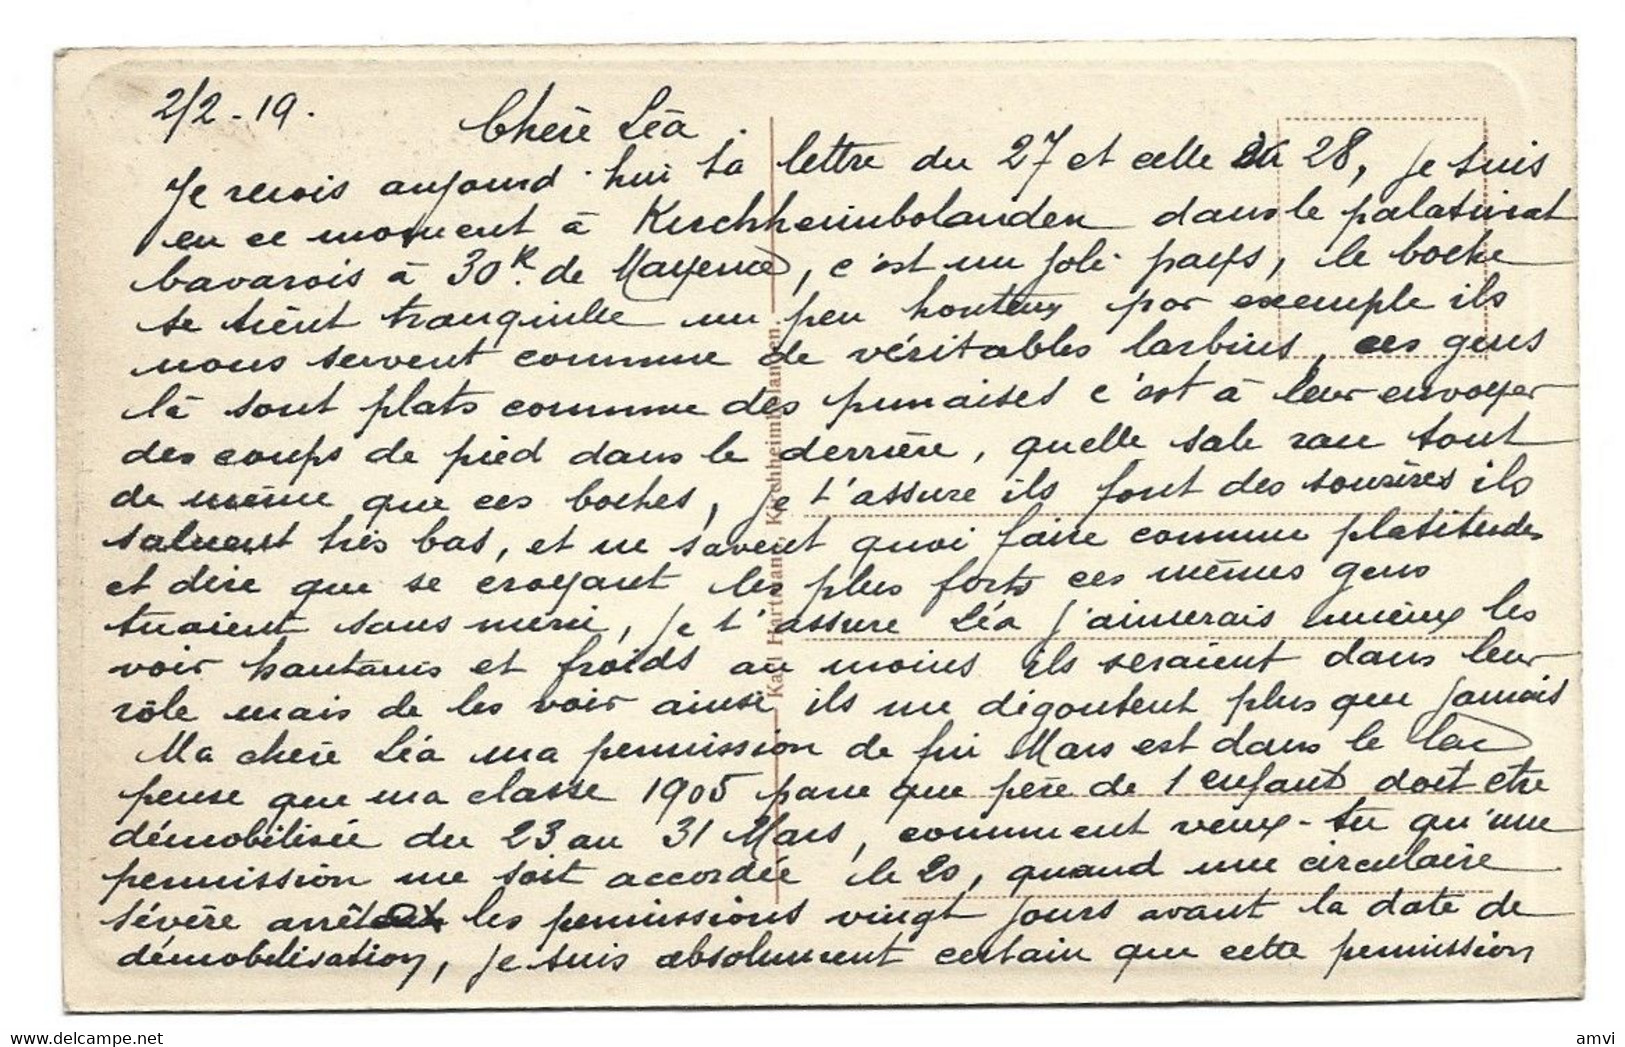 2/2-19.
Chère Léa
Je recois aujourd'hui ta lettre du 27 et celle du 28, je suis
en ce moment à Kirchheimbolanden dans le palatinat
bavarois à 30k. de Mayence, c'est un joli pays, le boche
se tient tranquille un peu honteux par exemple ils
nous servent comme de véritables larbins, ces gens
là sont plats comme des punaises c'est à leur envoyer
des coups de pied dans le derrière, quelle sale race tout
de même que ces boches, je t'assure ils font des sourires ils
saluent très bas, et ne savent quoi faire comme platitudes
et dire que se croyant les plus forts ces mêmes gens
tuaient sans merci, je t'assure Léa j'aimerais mieux les
voir hautains et froids au moins ils seraient dans leur
rôle mais de les voir ainsi ils me dégoutent plus que jamais
Ma chère Léa ma permission de fin Mars est dans le lac
pense que ma classe 1905 parce que père de 1 enfant doit etre
démobilisée du 23 au 31 Mars, comment veux-tu qu'une
permission me soit accordée le 20, quand une circulaire
sévère arrêtant les permissions vingt jours avant la date de
démobilisation, je suis absolument certain que cette permission
Karl Hartmann, Kirchheimbolanden.
amvi
delcampe.net